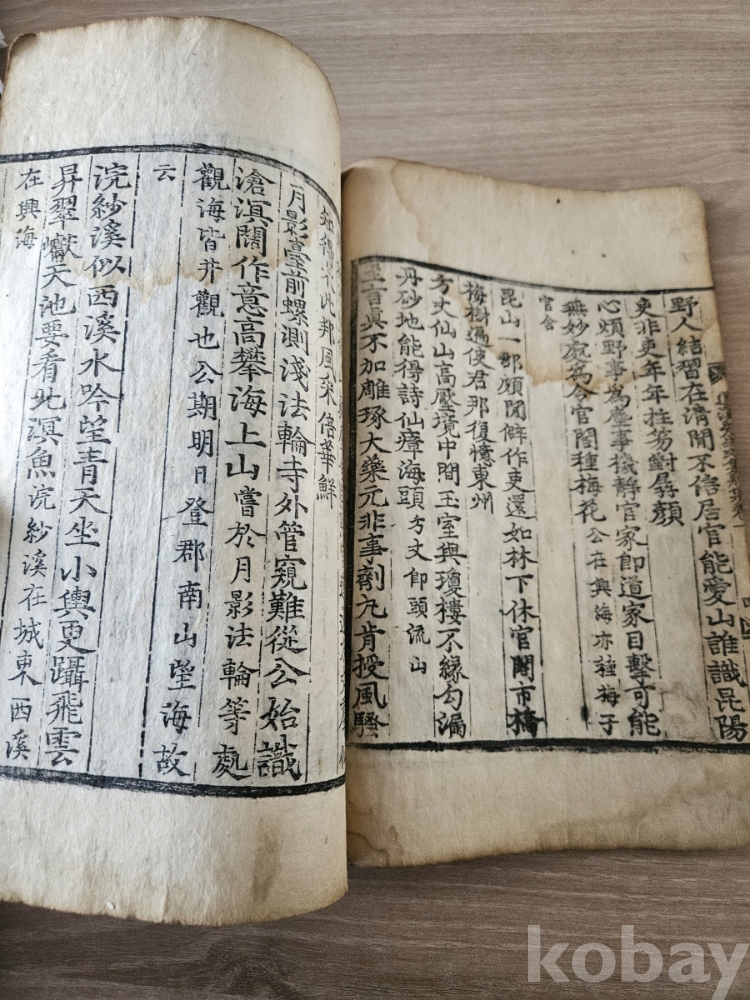 野人結習在清閒不信居官能愛山誰識昆陽
吏非吏年年拄笏對孱顔
心煩野事爲塵事機靜官家卽道家目擊可能
無妙處爲令官閣種梅花公在興海亦種梅于
官舍
昆山一郡頗閒僻作吏還如林下休官閣市橋
梅樹遍使君那復憶東州
方丈仙山高壓境中間玉室與瓊樓不緣勾漏
丹砂地能得詩仙瘴海頭方丈卽頭流山
玉言眞不加雕琢大藥元非事劑九肯授風騷
知得來此邦風采倍華鮮
月影臺前螺測淺法輪寺外管窺難從公始識
滄溟闊作意高攀海上山嘗於月影法輪等處
觀海皆井觀也公期明日登郡南山望海故
云
浣紗溪似西溪水吟望青天坐小輿更躡飛雲
昇翠巘天池要看北溟魚浣紗溪在城東西溪
在興海
kobay